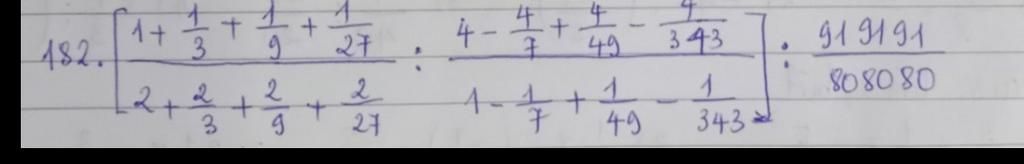 182. [ (1 + 1/3 + 1/9 + 1/27) / (2 + 2/3 + 2/9 + 2/27) : (4 - 4/7 + 4/49 - 4/343) / (1 - 1/7 + 1/49 - 1/343) ] : 919191/808080